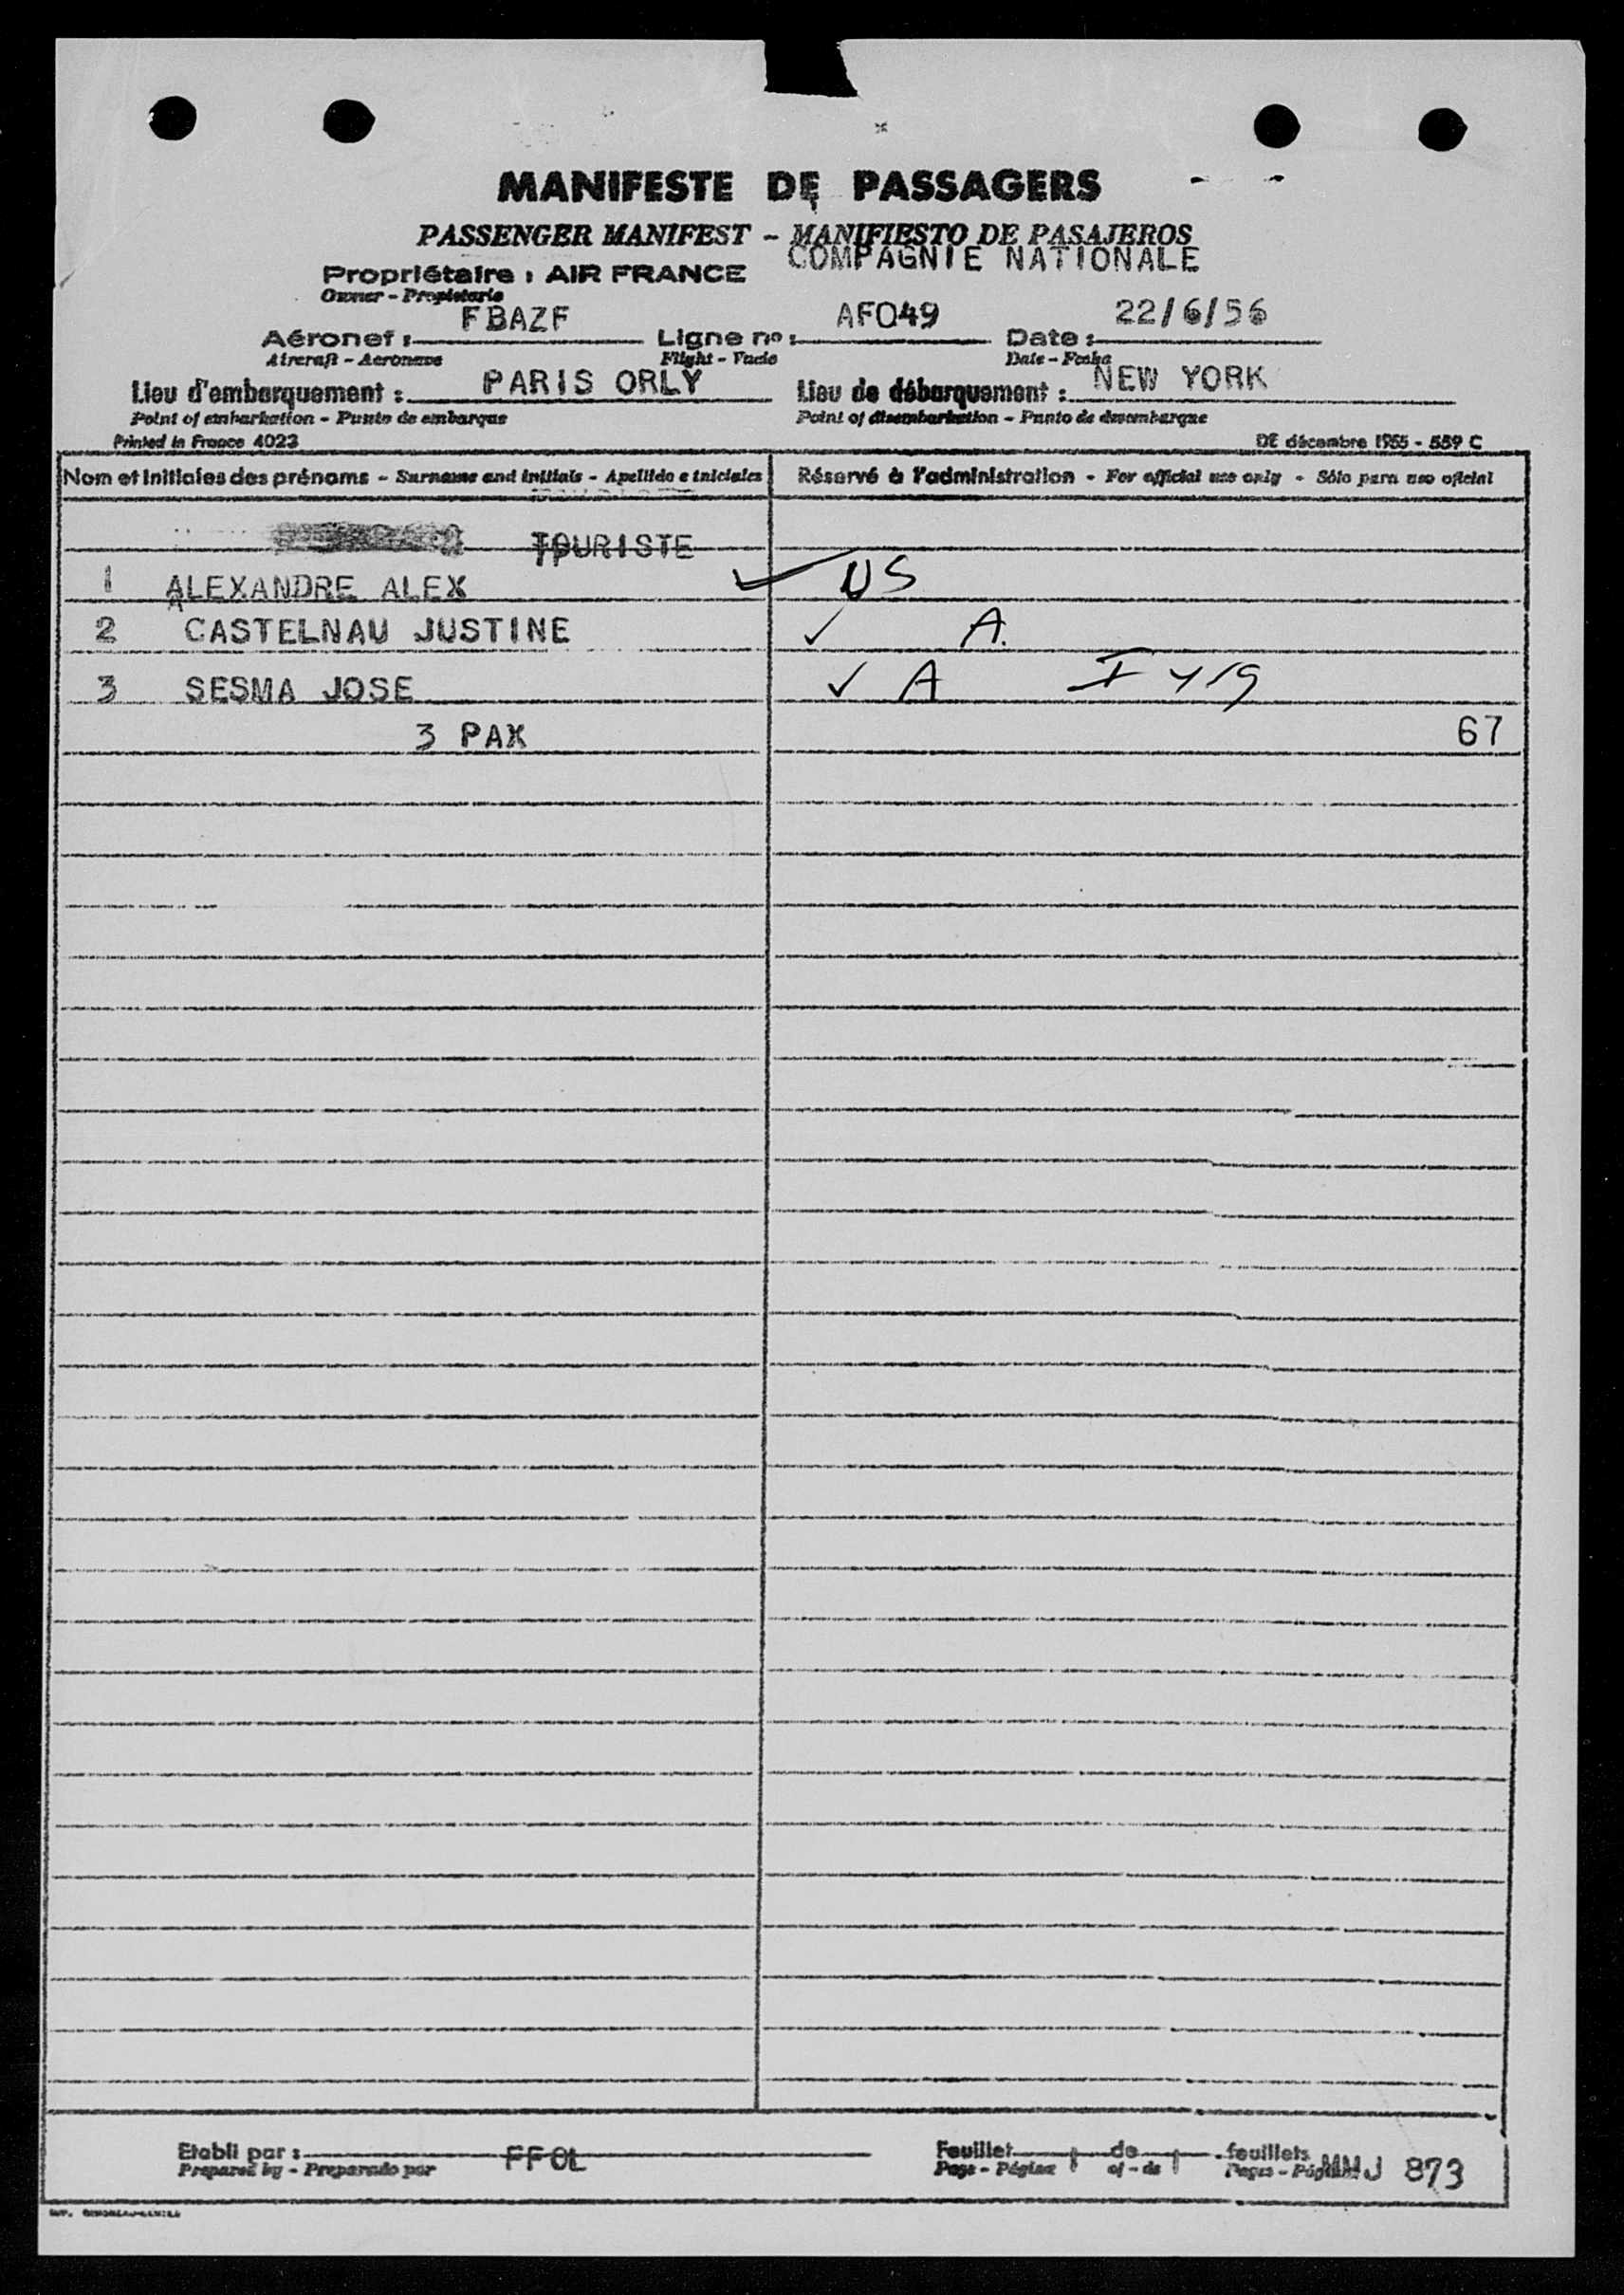 MANIFESTE DE PASSAGERS
PASSENGER MANIFEST - MANIFIESTO DE PASAJEROS
COMPAGNIE NATIONALE
Propriétaire : AIR FRANCE
Owner - Propietario
Aéronef : FBAZF Ligne no : AF049 Date : 22/6/56
Aircraft - Aeronave Flight - Date - Fecha
Lieu d'embarquement : PARIS ORLY Lieu de débarquement : NEW YORK
Point of embarkation - Punto de embarque Point of disembarkation - Punto de desembarque
Printed in France 4023 DE décembre 1955 - 559 C
Nom et Initiales des prénoms - Surname and initials - Apellido e iniciales Réservé à l'administration - For official use only - Sólo para uso oficial
TOURISTE
1 ALEXANDRE ALEX ✓ US
2 CASTELNAU JUSTINE ✓ A.
3 SESMA JOSE ✓ A I 419
3 PAX 67
Etabli par : FFOL Feuillet 1 de 1 feuillets MMJ 873
Prepared by - Preparado por Page - Página of - de Pages -